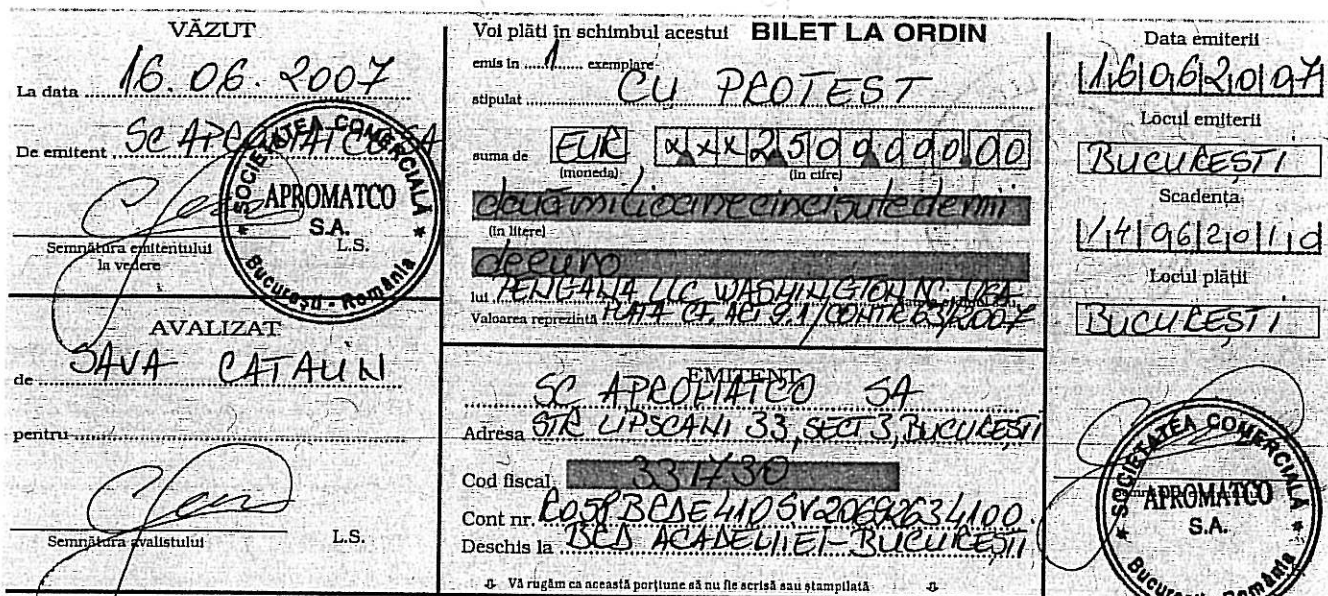 VĂZUT
La data 16.06.2007
De emitent SC APROMATCO SA
SOCIETATEA COMERCIALĂ
APROMATCO
S.A.
București - România
Semnătura emitentului
la vedere
L.S.
AVALIZAT
de SAVA CATALIN
pentru
Semnătura avalistului
L.S.
Voi plăti în schimbul acestui BILET LA ORDIN
emis in 1 exemplare
stipulat CU PROTEST
suma de EUR xxx2500000,00
(moneda) (in cifre)
două milioane cinci sute de mii
(in litere)
de euro
lui LLC WASHINGTON
Valoarea reprezintă PLATA CF. 9.1/CONTR 63/2007
EMITENT
SC APROMATCO SA
Adresa STR LIPSCANI 33, SECT 3, BUCUREȘTI
Cod fiscal 331730
Cont nr.
Deschis la ACADEMIEI-BUCUREȘTI
Vă rugăm ca această porțiune să nu fie scrisă sau ștampilată
Data emiterii
16062007
Locul emiterii
BUCUREȘTI
Scadența
14062010
Locul plății
BUCUREȘTI
SOCIETATEA COMERCIALĂ
APROMATCO
S.A.
București - România